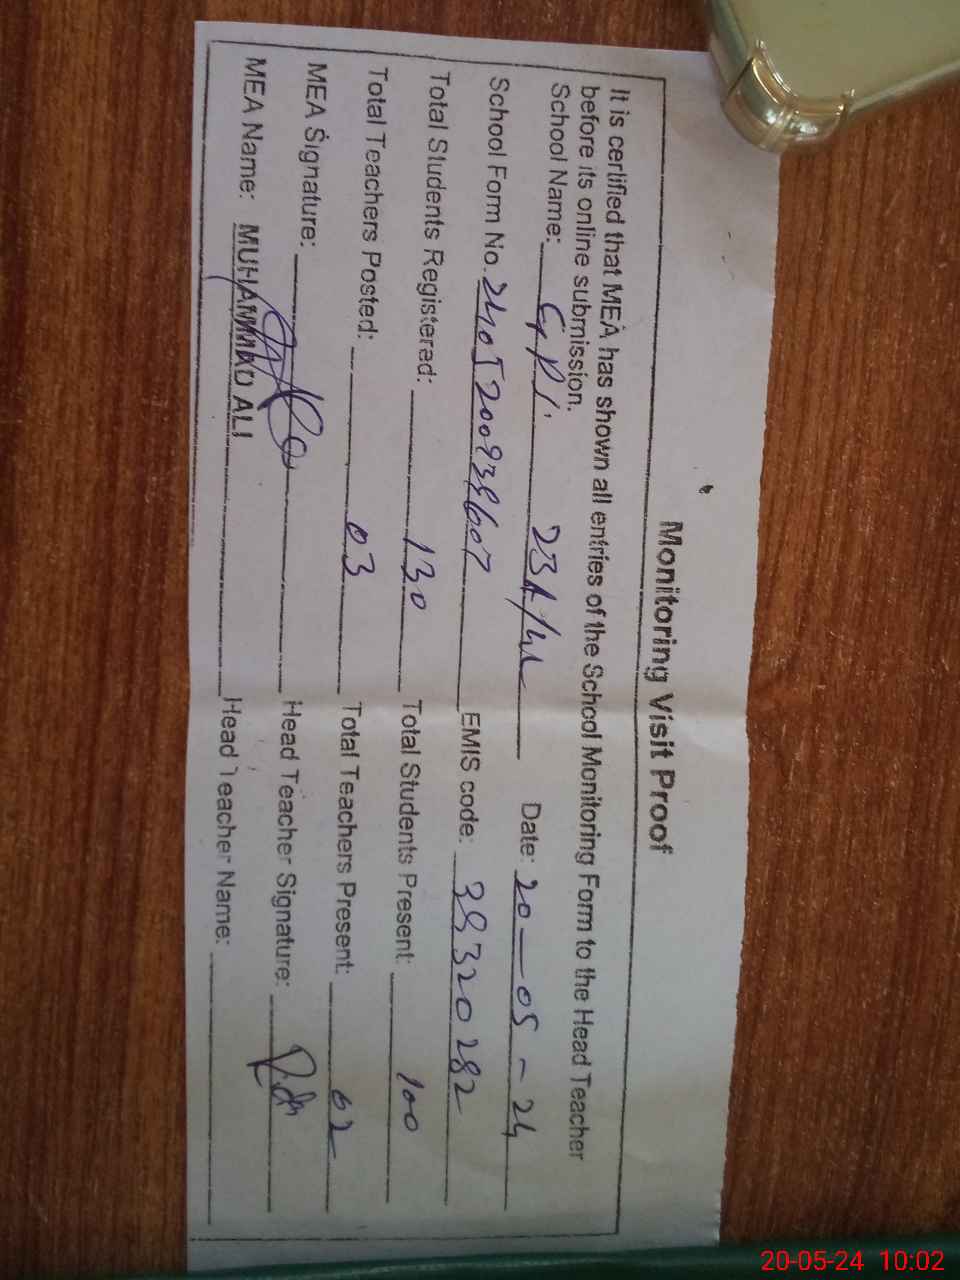 Monitoring Visit Proof
It is certified that MEA has shown all entries of the School Monitoring Form to the Head Teacher
before its online submission.
School Name: Date: 20-05-24
School Form No. EMIS code: 38320282
Total Students Registered: 130 Total Students Present: 100
Total Teachers Posted: 03 Total Teachers Present: 02
MEA Signature: Head Teacher Signature:
MEA Name: MUHAMMAD ALI Head Teacher Name:
20-05-24 10:02